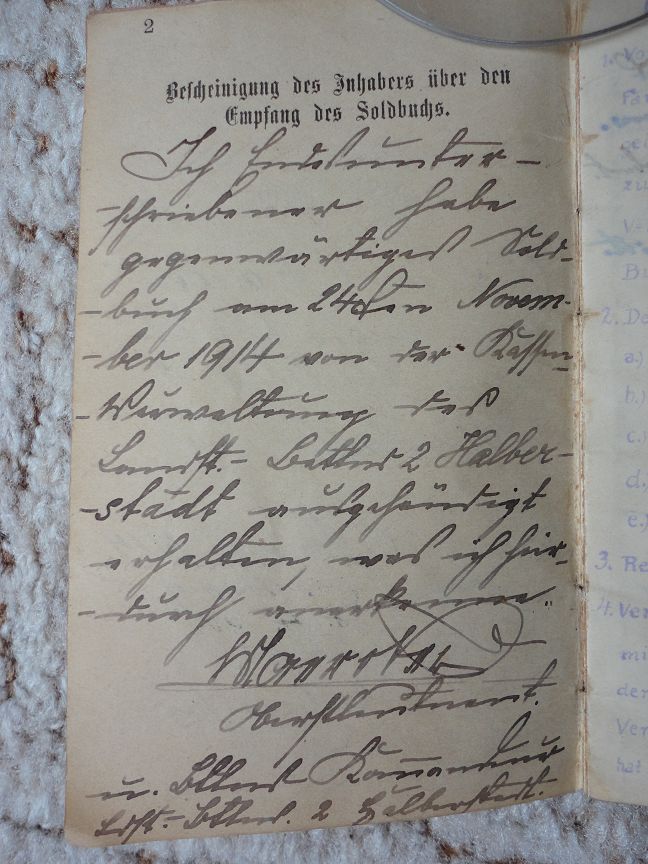 2
Bescheinigung des Inhabers über den
Empfang des Soldbuchs.
Ich Endesunter-
-schriebener habe
gegenwärtiges Sold-
-buch am 24ten Novem-
-ber 1914 von der Kassen-
-Verwaltung des
Landst.- Batlns 2 Halber-
-stadt ausgehändigt
erhalten, was ich hier-
-durch anerkenne.
Oberstleutnant.
u. Batlns Kommandeur
Ldst.- Batlns. 2 Halberstadt.
2. De
a.)
b.)
c.)
d.)
e.)
3. Re
4. Ver
mi
der
Ver
hat